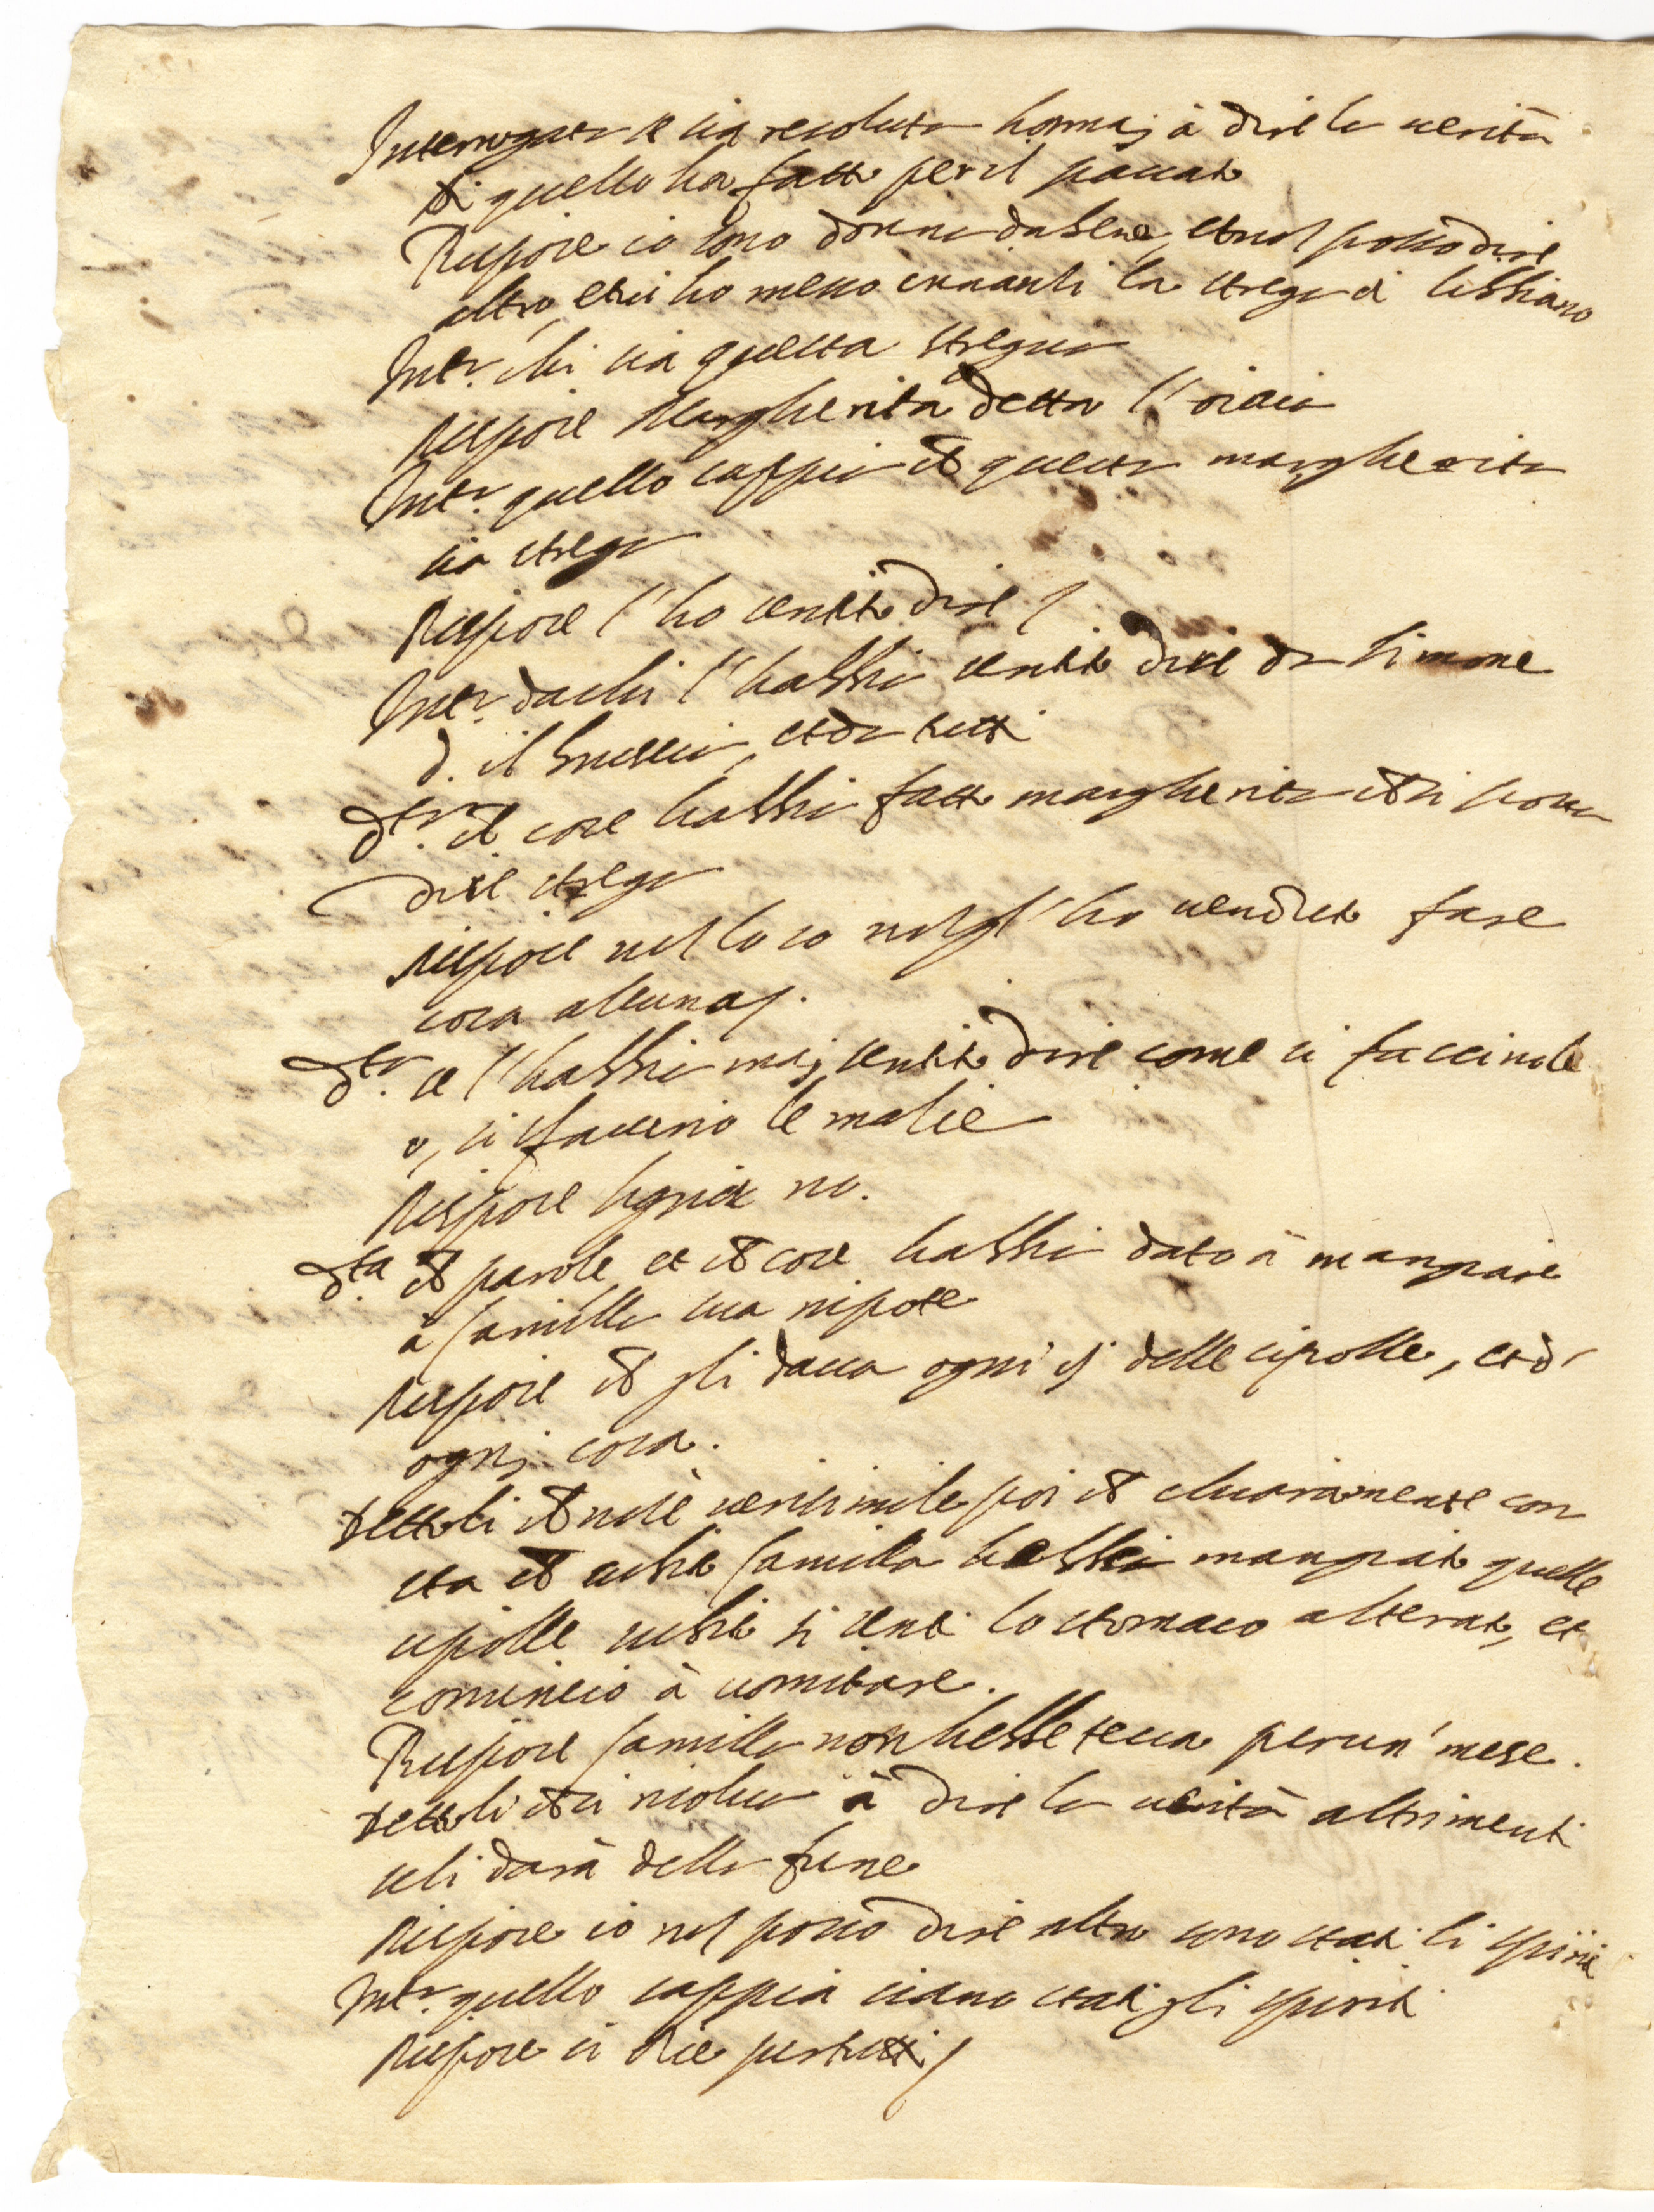 Interrogata se sia resoluta hormaj à dire la verità
di quello ha fatto per il passato
Rispose io sono donna da bene, et nol posso dire
altro, et vi ho messo innanti la strega di
Intr. chi sia questa strega
Rispose Margherita detta l'
Intr. quello sappia che questa margherita
sia strega
Rispose l'ho sentito dire
Intr. da chi l'habbi sentito dire da
d. il et da tutti
dta. che cose habbi fatto margherita che si possa
dire strega
Rispose nol so io nol gl'ho veduto fare
cosa alcuna
dta. se l'habbi maj sentito dire come si faccino le
o, si facevino le malie
Rispose signor no.
dta che parole et che cose habbi dato à mangiare
à Camilla sua nipote
Rispose che gli dava ogni dì delle cipolle, et d'
ogni cosa.
dettoli che non è verisimile poi che chiaramente con
sta che subito Camilla habbi mangiato quelle
cipolle subito si sentì lo stomaco alterato, et
cominciò à vomitare.
Rispose Camilla non hebbe per un' mese.
dettoli che si risolva à dire la verità altrimenti
seli darà della fune
Rispose io nol posso dire altro sono stati li spiriti
Intr. quello sappia siano stati gli spiriti
Rispose si dice per tutti